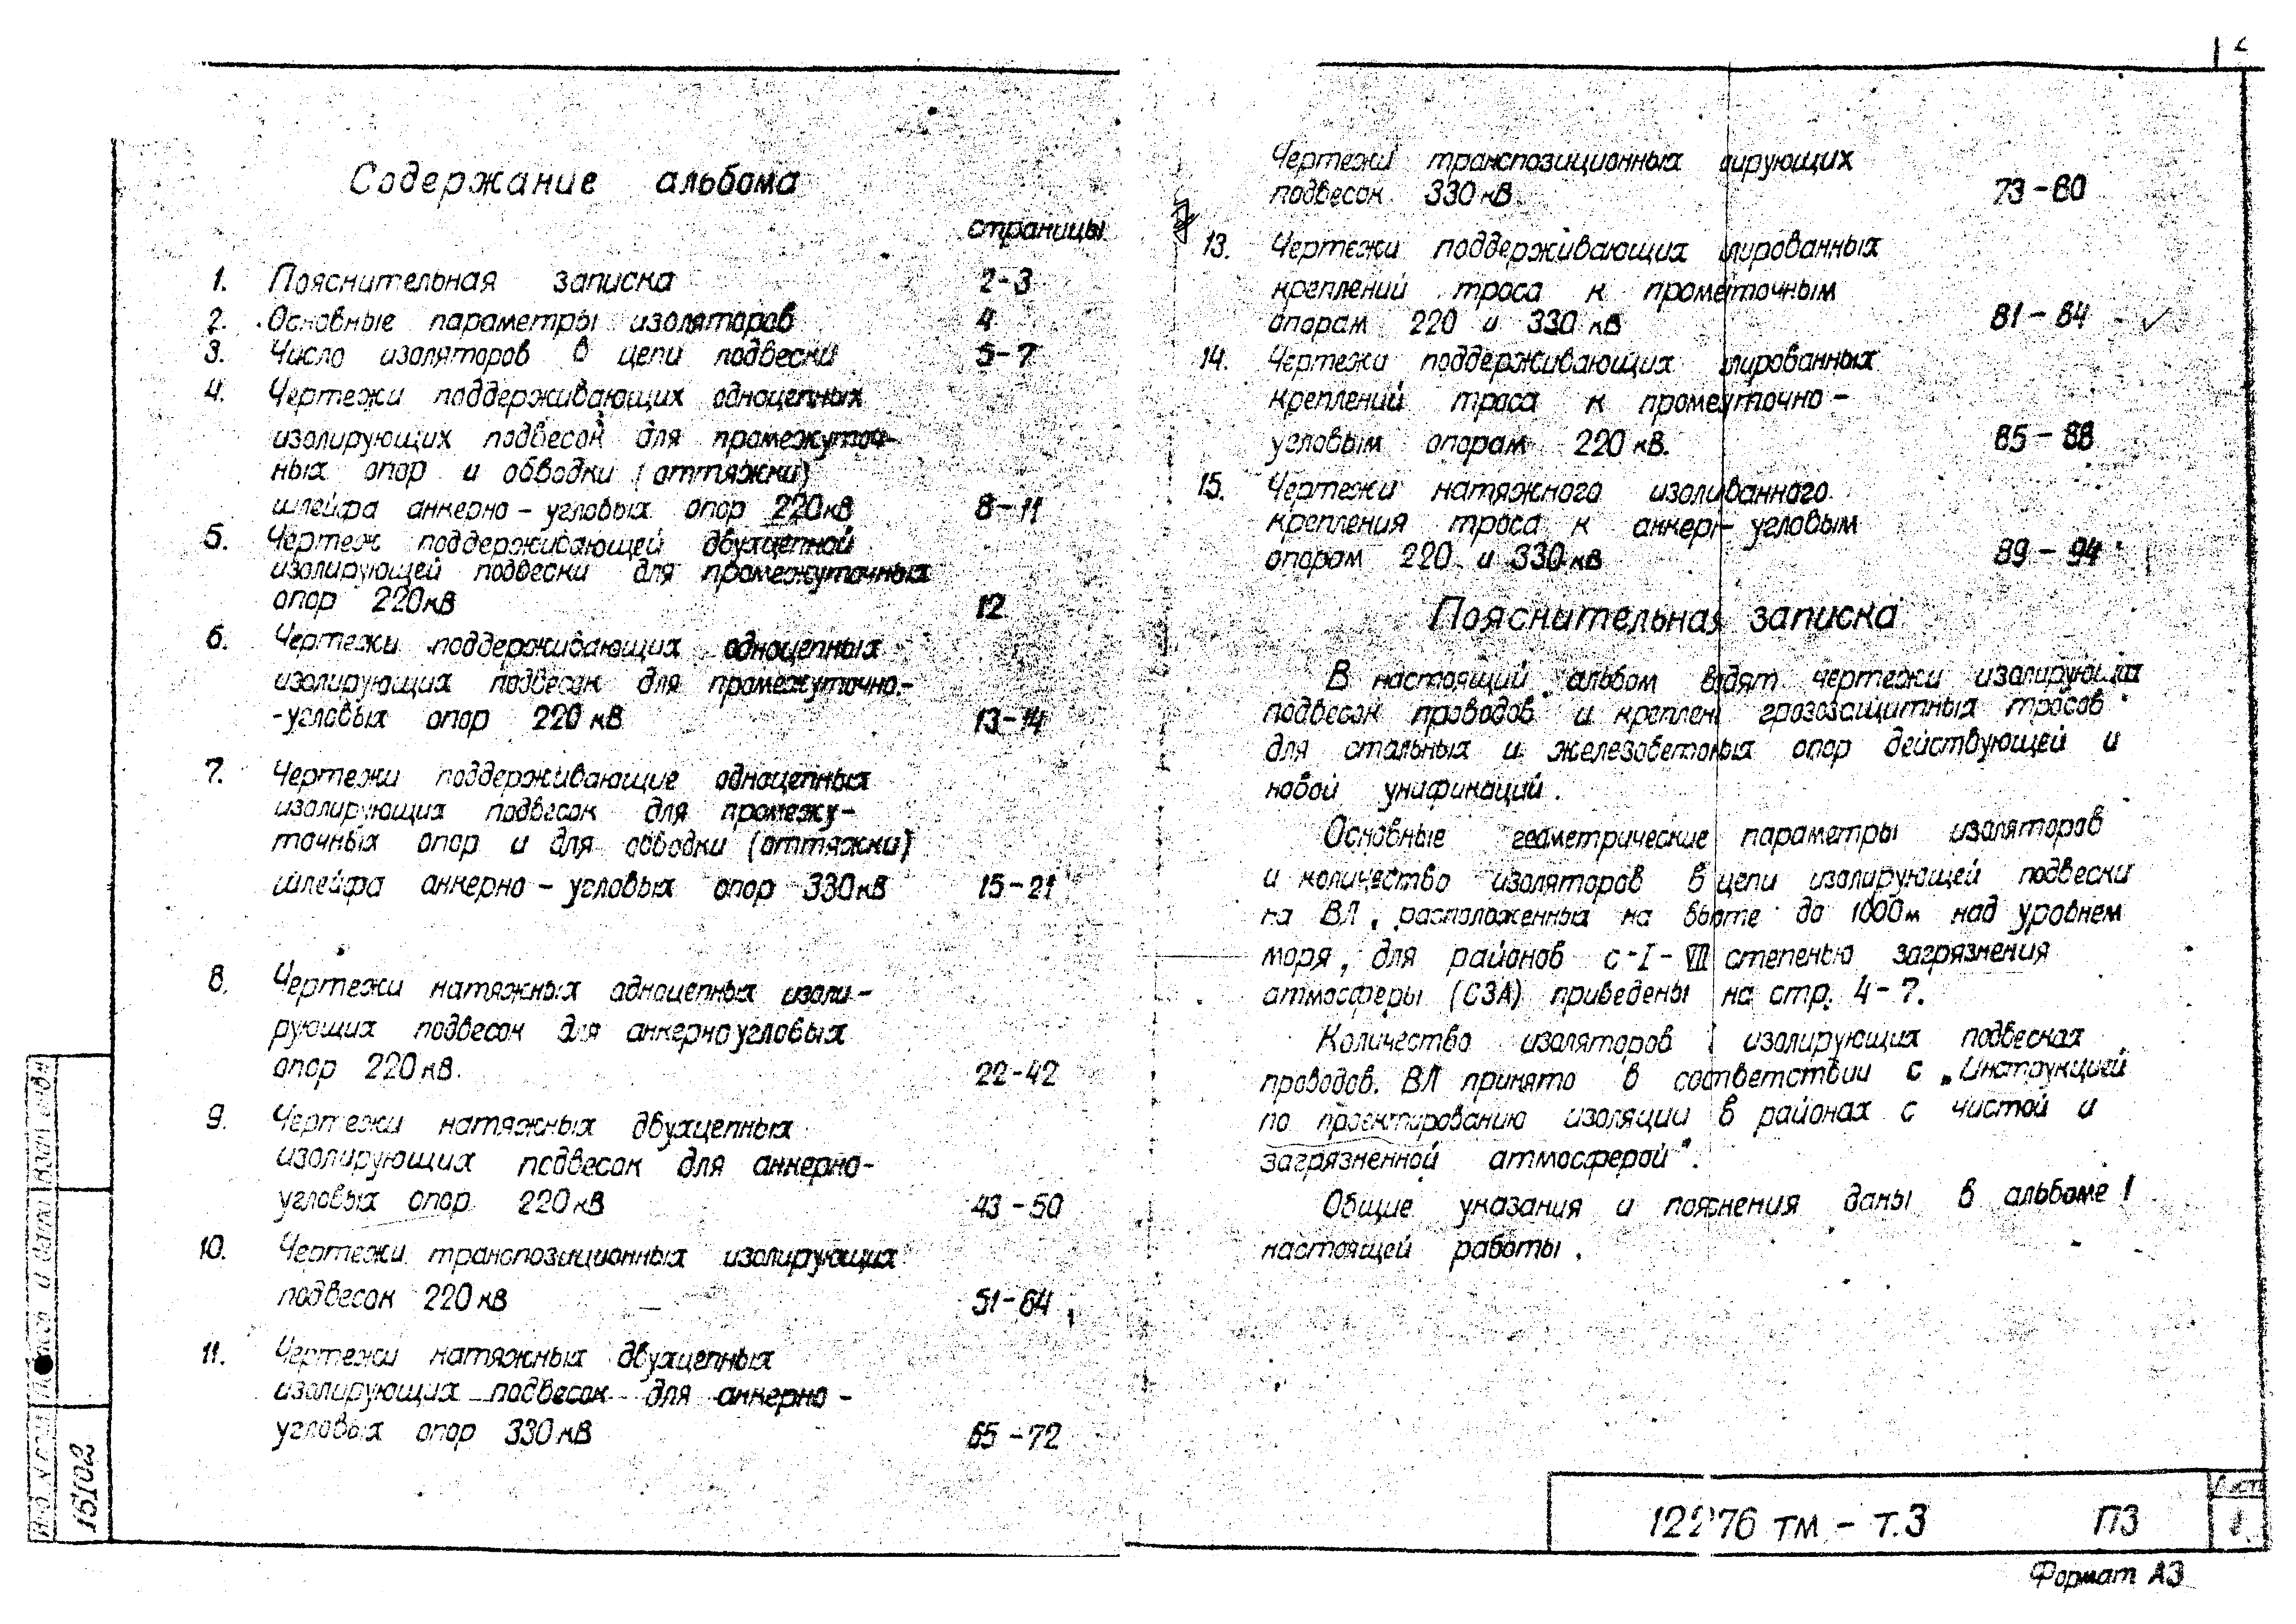 Содержание альбома
страницы
1. Пояснительная записка 2-3
2. Основные параметры изоляторов 4
3. Число изоляторов в цепи подвески 5-7
4. Чертежи поддерживающих одноцепных
изолирующих подвесок для промежуточ-
ных опор и обводки (оттяжки)
шлейфа анкерно - угловых опор 220кВ 8-11
5. Чертеж поддерживающей двухцепной
изолирующей подвески для промежуточных
опор 220кВ 12
6. Чертежи поддерживающих одноцепных
изолирующих подвесок для промежуточно-
-угловых опор 220кВ 13-14
7. Чертежи поддерживающие одноцепных
изолирующих подвесок для промежу-
точных опор и для обводки (оттяжки)
шлейфа анкерно - угловых опор 330кВ 15-21
8. Чертежи натяжных одноцепных изоли-
рующих подвесок для анкерноугловых
опор 220кВ. 22-42
9. Чертежи натяжных двухцепных
изолирующих подвесок для анкерно-
угловых опор 220кВ 43-50
10. Чертежи транспозиционных изолирующих
подвесок 220кВ 51-64
11. Чертежи натяжных двухцепных
изолирующих подвесок для анкерно -
угловых опор 330кВ 65-72
Чертежи транспозиционных ирующих
подвесок 330кВ. 73-80
13. Чертежи поддерживающих лированных
креплений троса к прометочным
опорам 220 и 330кВ 81-84
14. Чертежи поддерживающих лированных
креплений троса к промеуточно -
угловым опорам 220кВ. 85-88
15. Чертежи натяжного изоливанного
крепления троса к анкерн- угловым
опорам 220 и 330кВ 89-94
Пояснительная записка
В настоящий альбом входят чертежи изолирующих
подвесок проводов и креплен грозозащитных тросов
для стальных и железобетоных опор действующей и
новой унификаций.
Основные геометрические параметры изоляторов
и количество изоляторов в цепи изолирующей подвески
на ВЛ, расположенных на высоте до 1000м над уровнем
моря, для районов с-I-VII степенью загрязнения
атмосферы (СЗА) приведены на стр. 4-7.
Количество изоляторов изолирующих подвесках
проводов. ВЛ принято в соответствии с „Инструкцией
по проектированию изоляции в районах с чистой и
загрязненной атмосферой".
Общие указания и пояснения даны в альбоме 1
настоящей работы.
Взам. инв.№
Подпись и дата
Инв. № подл.
15102
12276 тм - т.3 ПЗ
Лист
1
Формат А3